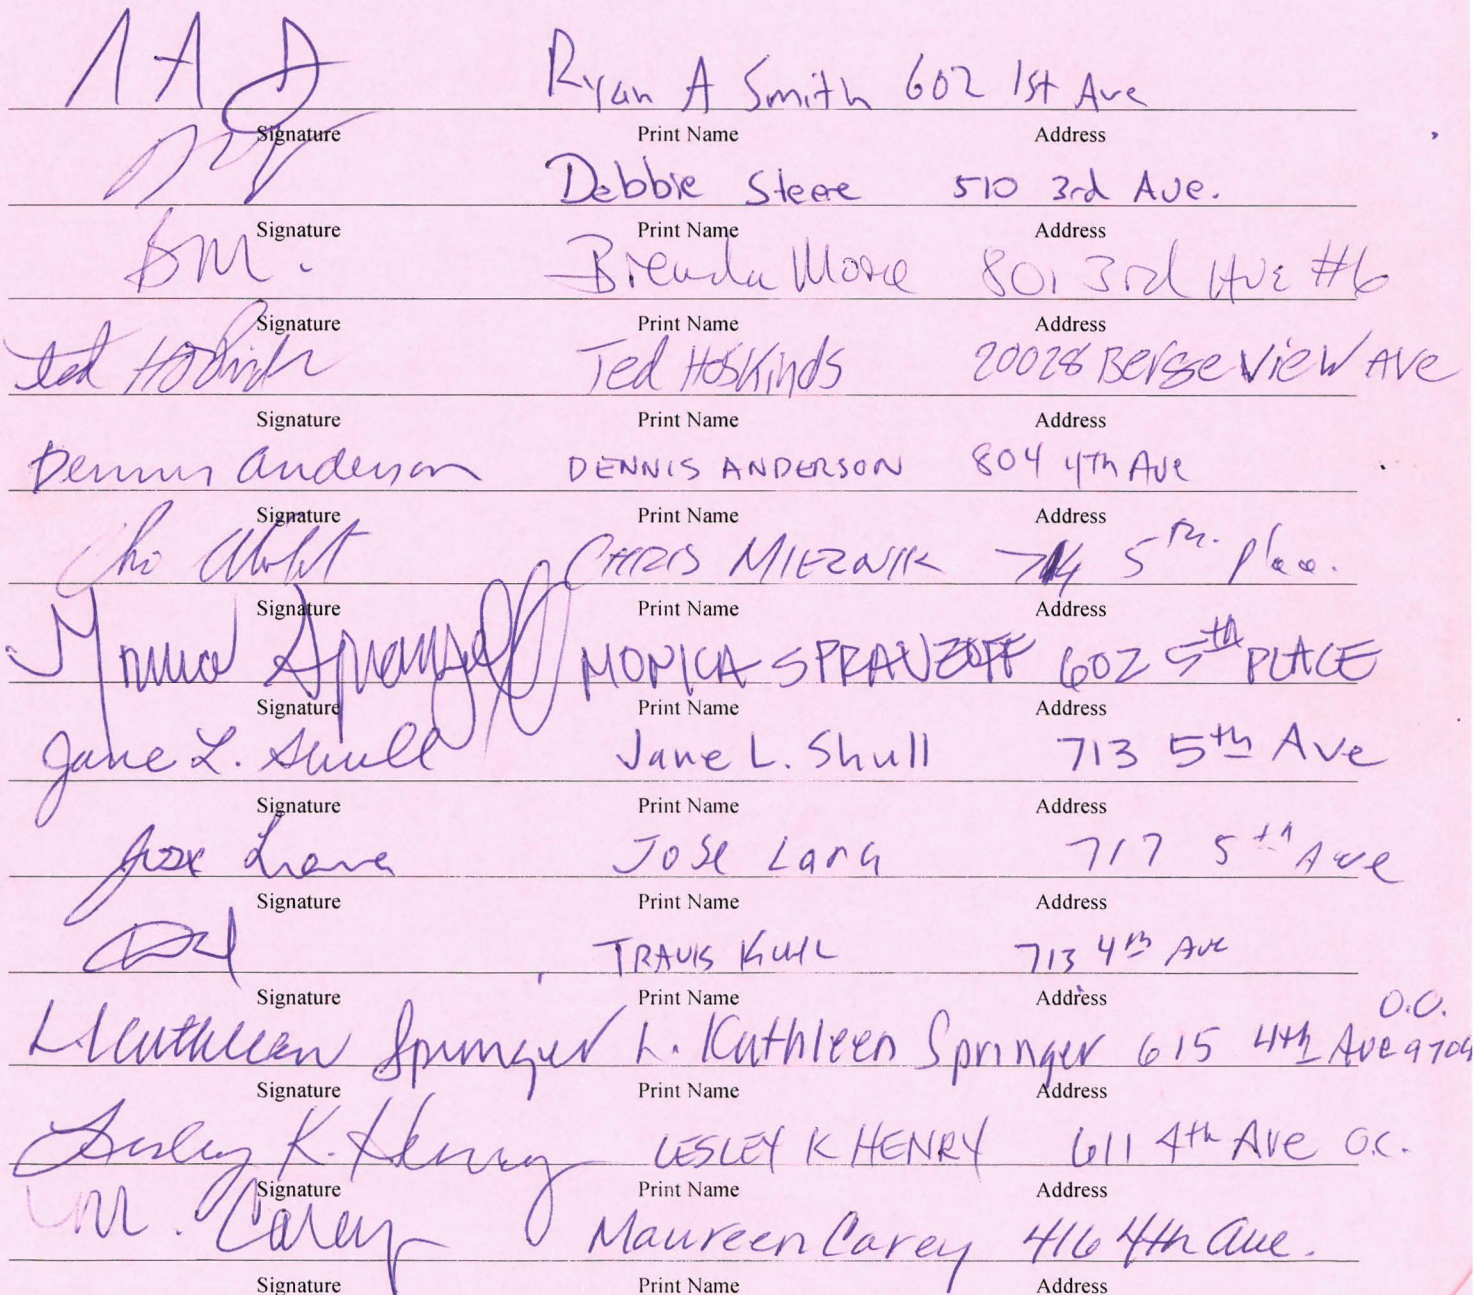 Ryan A Smith 602 1st Ave
Signature Print Name Address
Debbie Steere 510 3rd Ave.
Signature Print Name Address
BM. Brenda More 801 3rd Ave #6
Signature Print Name Address
Ted Hoskinds Ted Hoskinds 20028 View Ave
Signature Print Name Address
Dennis Anderson DENNIS ANDERSON 804 4th Ave
Signature Print Name Address
CHRIS MIEZNIK 5th. Place.
Signature Print Name Address
MONICA 602 5th PLACE
Signature Print Name Address
Jane L. Shull Jane L. Shull 713 5th Ave
Signature Print Name Address
Jose Lara Jose Lara 717 5th Ave
Signature Print Name Address
TRAVIS KUHL 713 4th Ave
Signature Print Name Address
O.C.
L. Kathleen Springer L. Kathleen Springer 615 4th Ave 9704
Signature Print Name Address
Lesley K. Henry LESLEY K HENRY 611 4th Ave O.C.
Signature Print Name Address
M. Carey Maureen Carey 416 4th Ave.
Signature Print Name Address